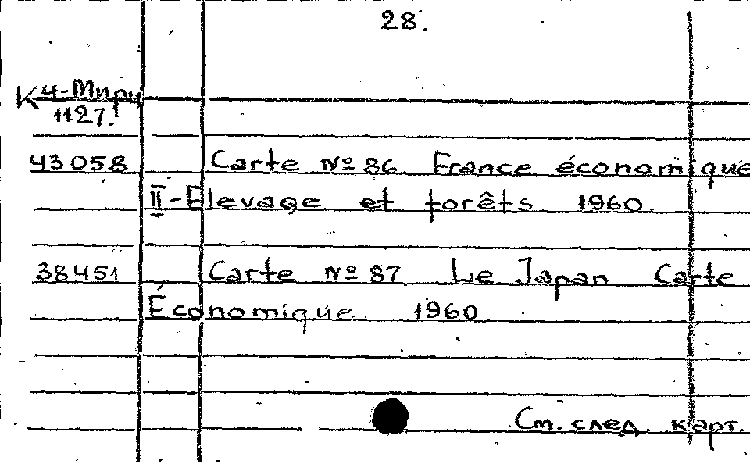 28.
К 4-Мири
1127.
43058 Carte № 86 France économique
II-Elevage et forêts 1960
38451 Carte № 87 Le Japan Carte
Économique 1960
См. след. карт.